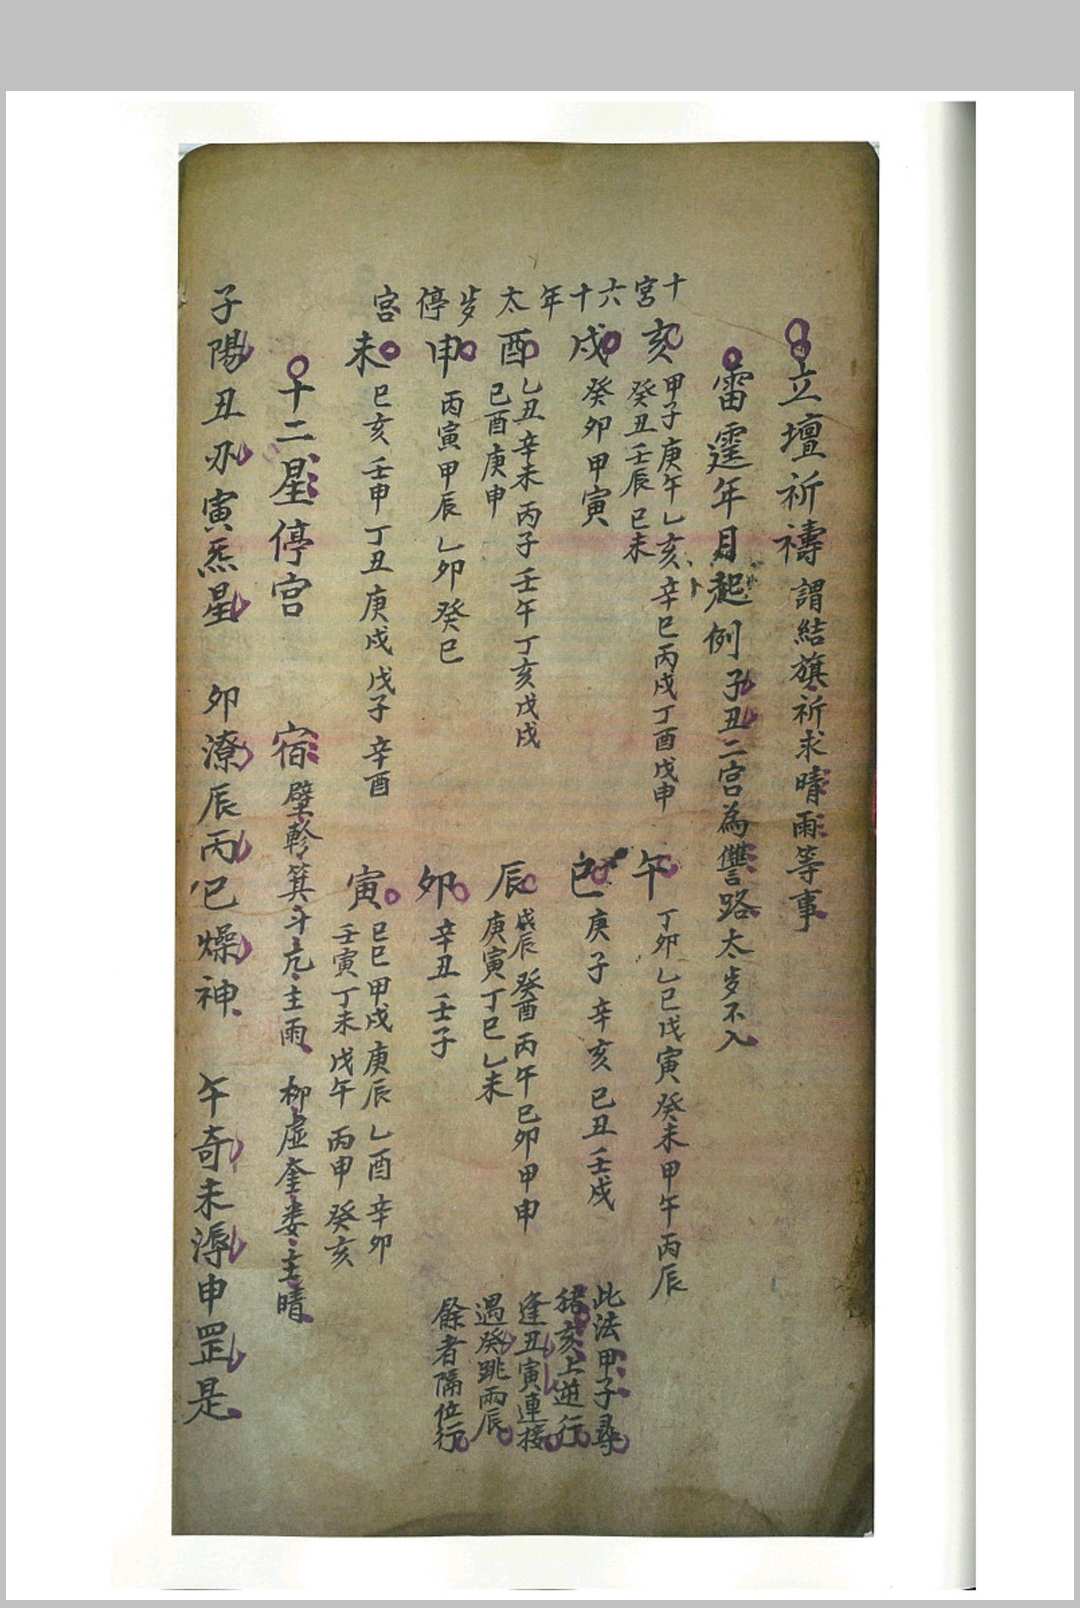 立壇祈禱 謂結旗祈求晴雨等事
雷霆年月起例 子丑二宮為讐路太岁不入
十宮六十年太岁停宮
亥 甲子庚午乙亥辛巳丙戌丁酉戊申
癸丑壬辰己未
戌 癸卯甲寅
酉 乙丑辛未丙子壬午丁亥戊戌
己酉庚申
申 丙寅甲辰乙卯癸巳
未 己亥壬申丁丑庚戌戊子辛酉
午 丁卯乙巳戊寅癸未甲午丙辰
巳 庚子辛亥己丑壬戌
辰 戊辰癸酉丙午己卯甲申
庚寅丁巳乙未
卯 辛丑壬子
寅 己巳甲戌庚辰乙酉辛卯
壬寅丁未戊午丙申癸亥
此法甲子尋
猪亥上逆行
逢丑寅連接
遇癸跳兩辰
餘者隔位行
十二星停宮 宿 壁軫箕斗亢主雨 柳虛奎婁主晴
子陽丑刅寅炁星 卯潦辰丙巳燥神 午奇未溽申罡是